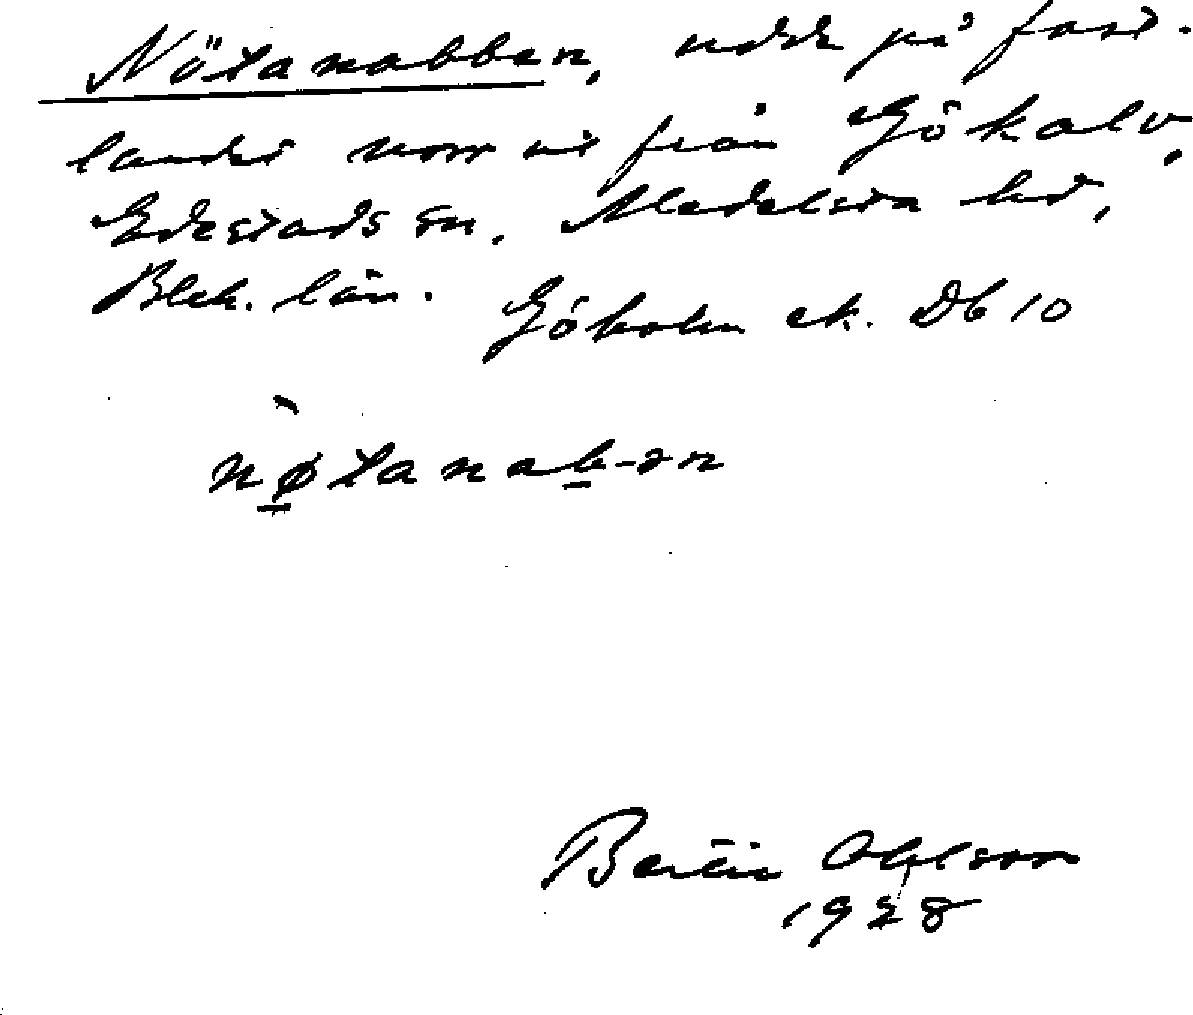 Nötanabben, udde på fast-
landet norr ut från Gökalv,
Edestads sn. Medelsta hd,
Blek. län. Göholm ek. Db 10
nøtanab-ən
Bertil Ohlsson
1928